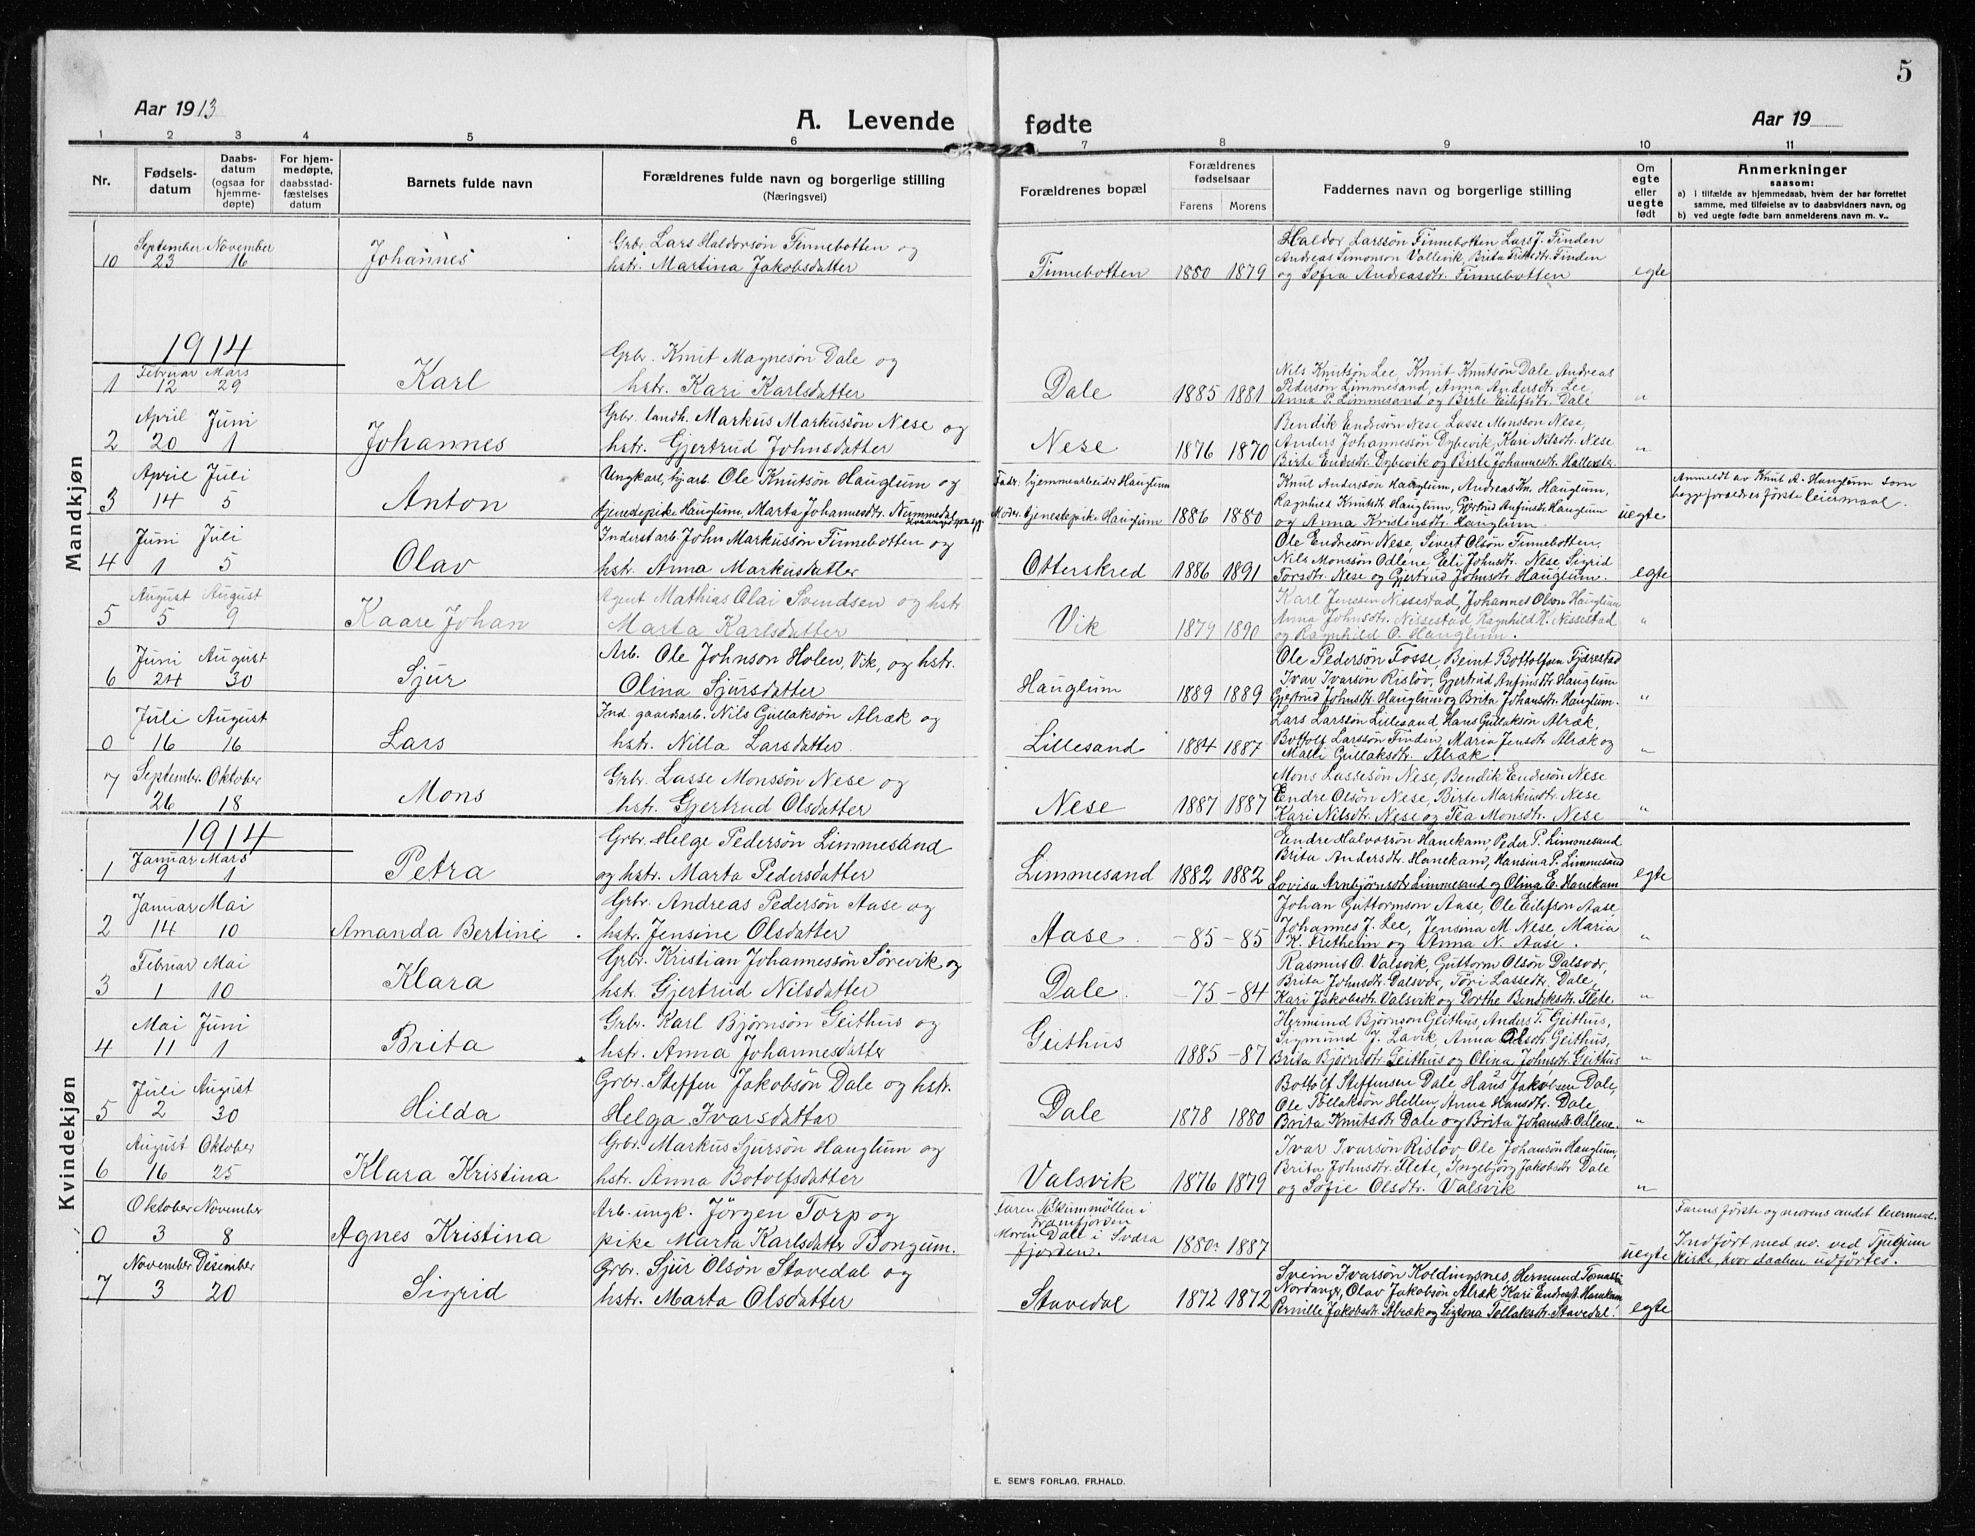 5
Aar 1913
A. Levende fødte
Aar 19
1 2 3 4 5 6 7 8 9 10 11
Nr.
Fødsels-
datum
Daabs-
datum
(ogsaa for
hjemme-
døpte)
For hjem-
medøpte,
daabsstad-
fæstelses
datum
Barnets fulde navn
Forældrenes fulde navn og borgerlige stilling
(Næringsvei)
Forældrenes bopæl
Forældrenes
fødselsaar
Farens Morens
Faddernes navn og borgerlige stilling
Om
egte
eller
uegte
født
Anmerkninger
saasom:
a) i tilfælde av hjemmedaab, hvem der har forrettet
samme, med tilføielse av to daabsvidners navn, og
b) ved uegte fødte barn anmelderens navn m. v..
Mandkjøn
September November
10 23 16
Johannes
Grbr. Lars Haldorsön Finnebotten og
hstr. Martina Jakobsdatter
Finnebotten 1880 1879
Haldor Larssön Finnebotten Lars J. Finden
Andreas Simonson Vallevik, Brita Friksdtr. Finden
og Sofia Andreasdtr. Finnebotten
egte
1914
Februar Mars
1 12 29
Karl
Grbr. Knut Magnesön Dale og
hstr. Kari Karlsdatter
Dale 1885 1881
Nils Knutsön Lee, Knut Knutsön Dale Andreas
Pedersön Limmesand, Anna Andersdtr. Lee,
Anna P. Limmesand og Birte Eilifsdtr. Dale
"
April Juni
2 20 1
Johannes
Grbr. landh. Markus Markussön Nese og
hstr. Gjertrud Johnsdatter
Nese 1876 1870
Bendik Endresön Nese Lasse Monsson Nese,
Anders Johannessön Dybevik, Kari Nilsdtr. Nese
Birte Endresdtr. Dybevik og Birte Johannesdtr.
"
April Juli
3 14 5
Anton
Ungkarl hj.arb. Ole Knutsön Hauglum og
tjenestepike Hauglum, Marta Johannesdtr. Nummedal
Fadr. hjemmearbeider Hauglum
Moder. tjenestepike Hauglum 1886 1880
Knut Anderssön Hauglum, Andreas Kn. Hauglum,
Ragnhild Knutsdtr. Hauglum, Gjertrud Anfinsdtr. Hauglum
og Anna Kristensdtr. Hauglum.
uegte
Anmeldt av Knut A. Hauglum som
begge forældres første leiermaal.
Juni Juli
4 1 5
Olav
Inderst arb. John Markussön Finnebotten og
hstr. Anna Markusdatter
Otterskred 1886 1891
Ole Endresön Nese, Sivert Olsön Finnebotten,
Nils Monssön Odlene, Eli Johnsdtr. Nese Sigrid
Torsdtr. Nese og Gjertrud Johnsdtr. Hauglum.
egte
August August
5 5 9
Kaare Johan
Agent Mathias Olai Svendsen og hstr
Marta Karlsdatter
Vik 1879 1890
Karl Jenssen Nissestad, Johannes Olson Hauglum
Anna Johnsdtr. Nissestad Ragnhild K. Nissestad
og Ragnhild O. Hauglum.
"
Juni August
6 24 30
Sjur
Arb. Ole Johnson Holen, Vik, og hstr.
Olina Sjursdatter
Hauglum 1889 1889
Ole Pedersön Fosse, Beint Bottolfsen Fjærestad
Ivar Ivarson Risløv, Gjertrud Anfindtr. Hauglum
Gjertrud Johnsdtr. Hauglum og Brita Johansdtr. Hauglum.
"
Juli August
0 16 16
Lars
Ind. gaardsarb. Nils Gullaksön Alræk og
hstr. Nilla Larsdatter.
Lillesand 1884 1887
Lars Larssön Lillesand, Hans Gullaksön Alræk,
Bottolf Larssön Finden, Maria Jensdtr. Alræk og
Malli Gullaksdtr. Alræk.
"
September Oktober
7 26 18
Mons
Grbr. Lasse Monssön Nese og
hstr. Gjertrud Olsdatter
Nese 1887 1887
Mons Lassesön Nese, Bendik Endresön Nese
Endre Olsön Nese, Birte Markusdtr. Nese
Kari Nilsdtr. Nese og Tea Monsdtr. Nese
"
Kvindekjøn
1914
Januar Mars
1 9 1
Petra
Grbr. Helge Pedersön Limmesand
og hstr. Marta Pedersdatter
Limmesand 1882 1882
Endre Halvorsön Hanekam, Peder P. Limmesand
Brita Andersdtr. Hanekam, Hansina P. Limmesand
Lovisa Arnbjörnsdtr Limmesand og Olina E. Hanekam
egte
Januar Mai
2 14 10
Amanda Bertine
Grbr. Andreas Pedersön Aase og
hstr. Jensine Olsdatter
Aase. –85 –85
Johan Guttormson Aase, Ole Eilefson Aase,
Johannes J. Lee, Jensina M. Nese, Maria
K. Fretheim og Anna N. Aase.
"
Februar Mai
3 1 10
Klara
Grbr. Kristian Johannessön Sørevik og
hstr. Gjertrud Nilsdatter
Dale. –75 –84
Rasmus O. Valsvik, Guttorm Olsön Dalsvær,
Brita Johnsdtr. Dalsvær, Töri Lassedtr. Dale,
Kari Jakobsdtr. Valsvik og Dorthe Bendiksdtr. Flete.
"
Mai Juni
4 11 1
Brita
Grbr. Karl Björnsön Geithus og
hstr. Anna Johannesdatter
Geithus 1885 –87
Hermund Björnson Geithus, Anders T. Geithus,
Sigmund J. Lavik, Anna Olsdtr Geithus,
Brita Björnsdtr. Geithus og Olina Johnsdtr. Geithus
"
Juli August
5 2 30
Hilda
Grbr. Steffen Jakobsön Dale og hstr.
Helga Ivarsdatter
Dale 1878 1880
Bottolf Steffensen Dale, Hans Jakobsen Dale,
Ole Tollaksön Hellen, Anna Hansdtr. Dale,
Brita Knutsdtr Dale og Brita Johansdtr. Odlene.
"
August Oktober
6 16 25
Klara Kristina
Grbr. Markus Sjursön Hauglum og
hstr. Anna Botolfsdatter
Valsvik 1876 1879
Ivar Ivarsön Risløv Ole Johansön Hauglum,
Brita Johnsdtr. Flete, Ingebjörg Jakobsdtr Dale
og Sofie Olsdtr. Valsvik
"
Oktober November
0 3 8
Agnes Kristina
Arb. ungk. Jörgen Torp og
pike Marta Karlsdatter Bongum.
Faren Skimmöllen i
Framfjorden
Moren Dale i Sværa
fjorden. 1880 1887
uegte
Farens første og morens andet leiermaal.
Indført med no. ved Tjugum
kirke, hvor daaben udførtes.
November Desember
7 3 20
Sigrid
Grbr. Sjur Olsön Stavedal og
hstr. Marta Olsdatter
Stavedal 1872 1872
Svein Ivarsön Koldingsnes, Hermund Tomassön
Nordanger, Olav Jakobsön Alræk Kari Endresdt. Hanekam
Pernille Jakobsdtr Alræk og Tollaksdtr. Stavedal.
egte
E. SEM'S FORLAG, FR.HALD.